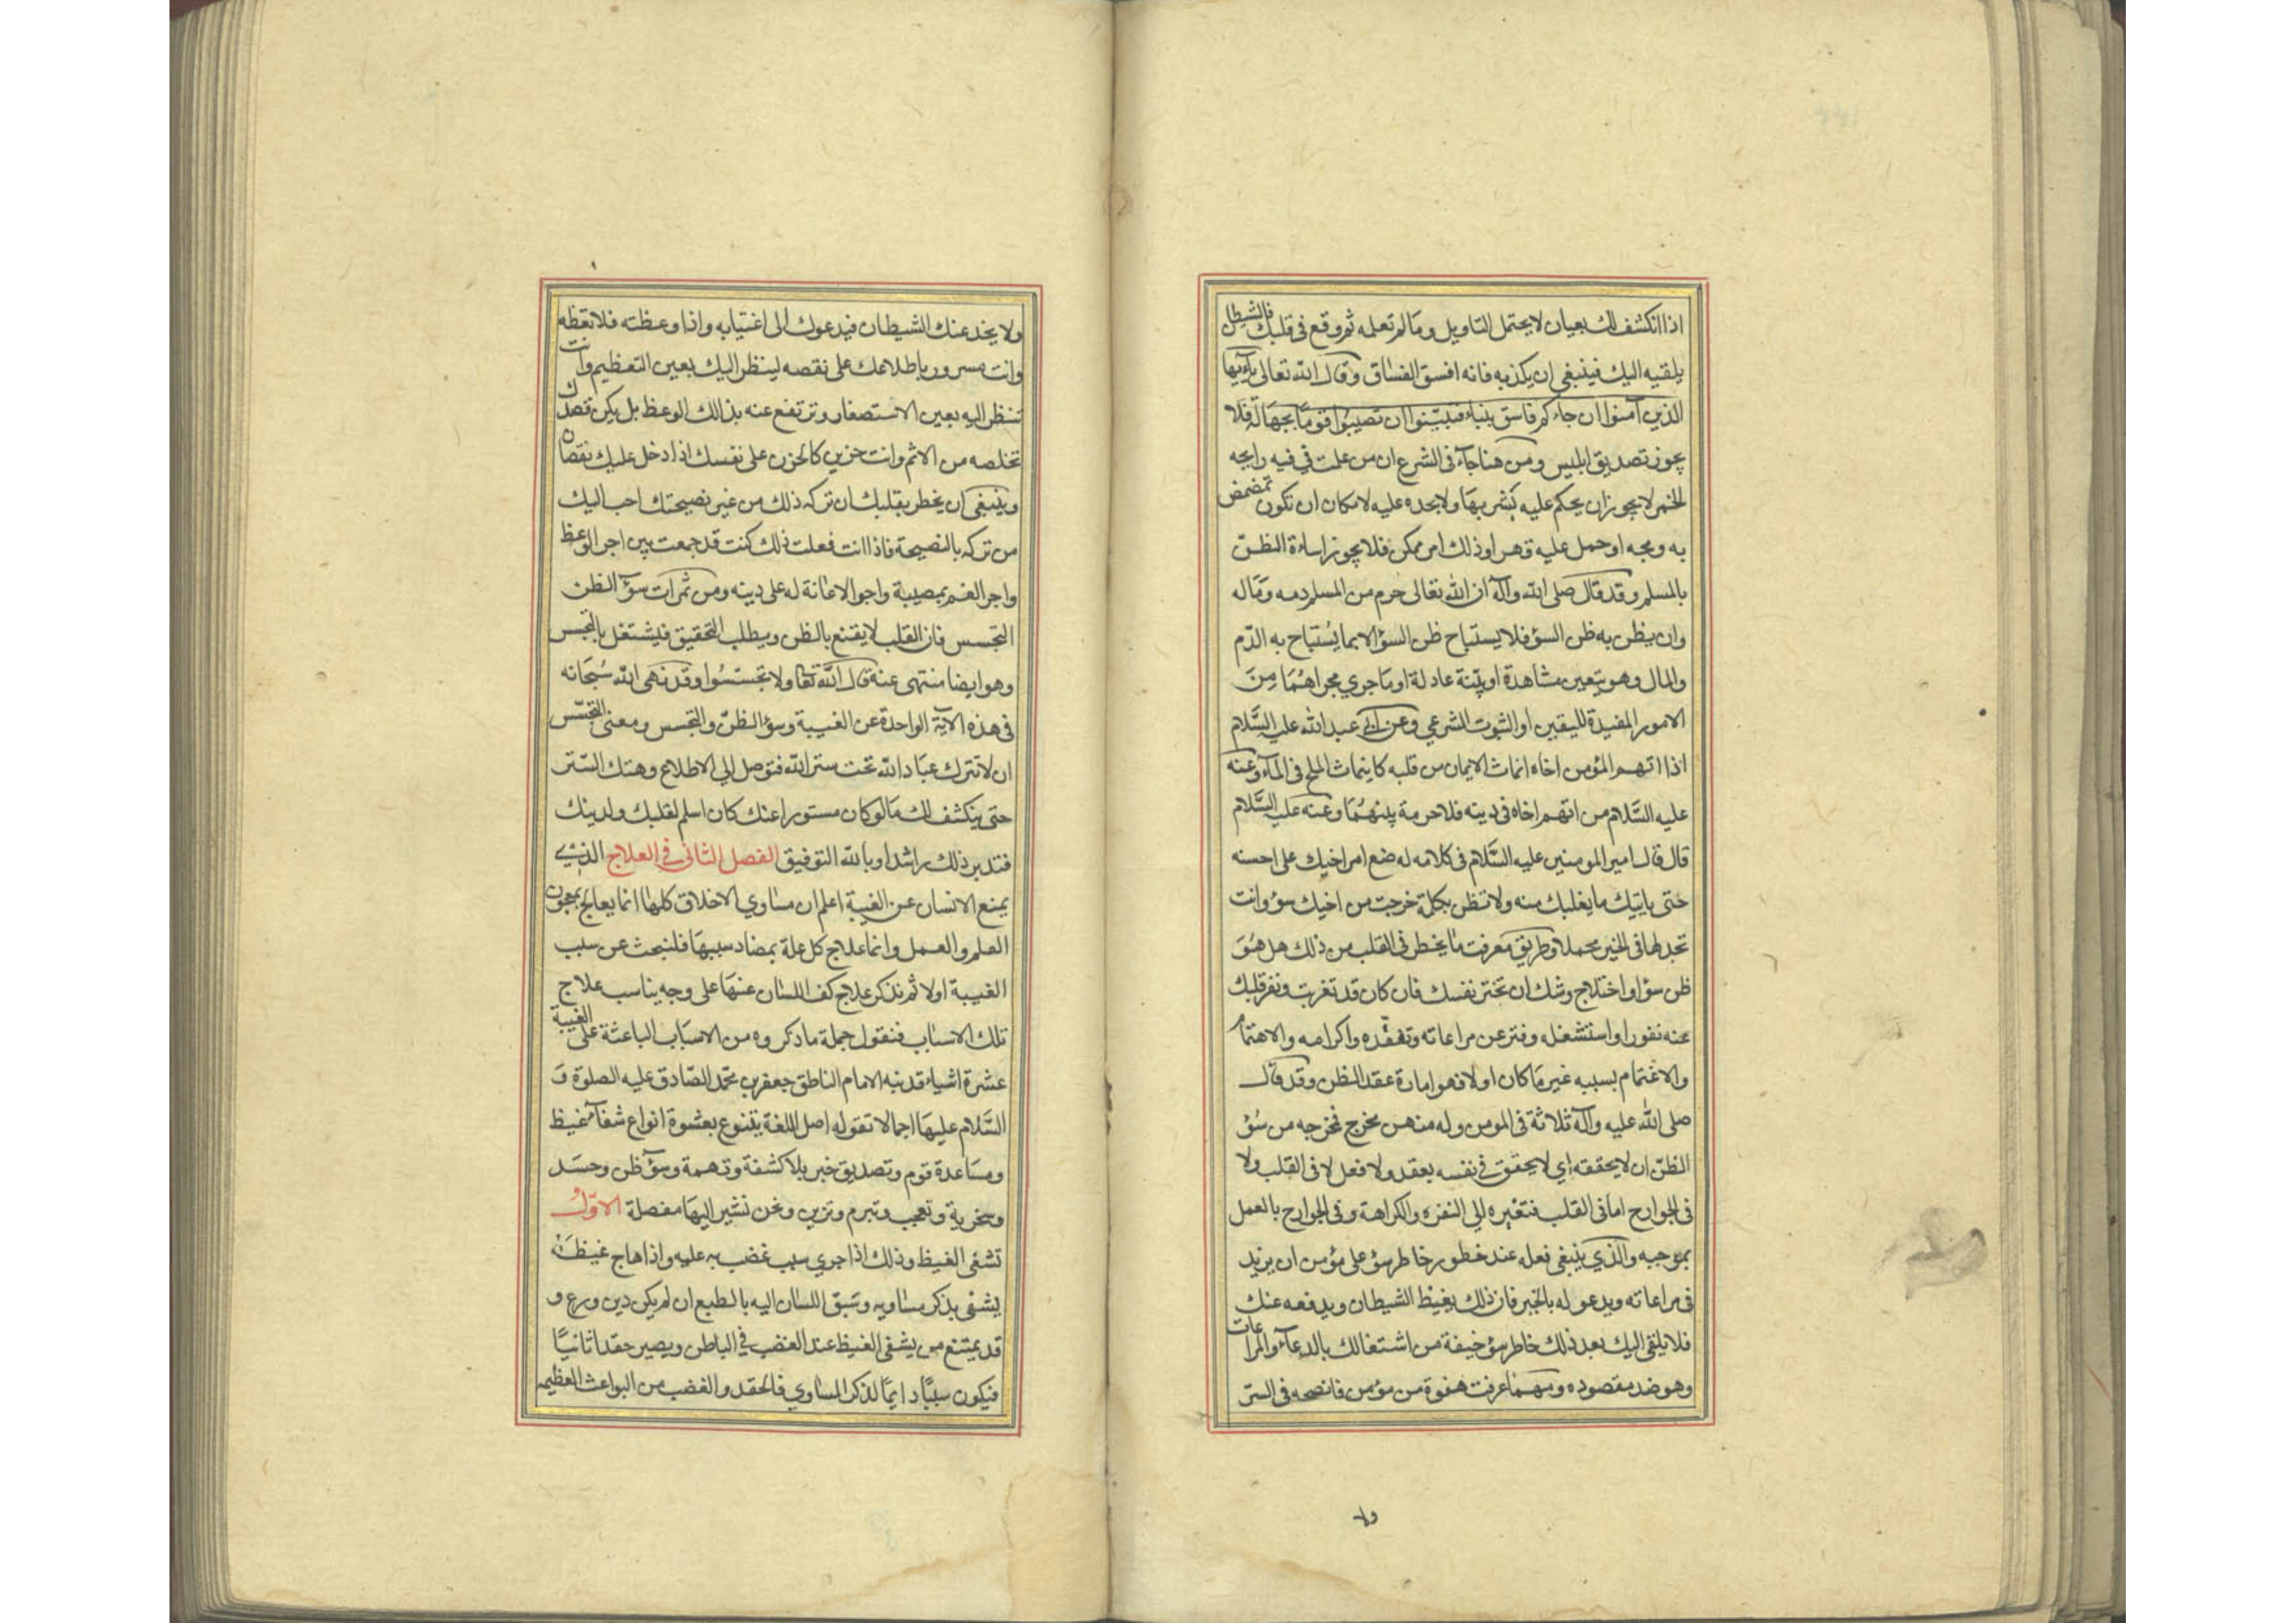 اذا انكشف لك بعيان لا يحتمل التاويل وما لم تعلمه ثم وقع في قلبك فالشيطان
يلقيه اليك فينبغي ان يكذبه فانه افسق الفساق وقال الله تعالى يا ايها
الذين آمنوا ان جاءكم فاسق بنباء فتبينوا ان تصيبوا قوما بجهالة فلا
يجوز تصديق ابليس ومن هنا جآء في الشرع ان من علمت في فيه رايحه
الخمر لا يجوز ان يحكم عليه بشربها ولا يحده عليه لامكان ان تكون تمضمض
به ومجه او حمل عليه قهرا وذلك امر ممكن فلا يجوز اساءة الظنّ
بالمسلم وقد قال صلى الله وآله ان الله تعالى حرم من المسلم دمه وماله
وان يظن به ظن السؤ فلا يستباح ظن السؤ الا بما يُستباح به الدّم
والمال وهو بتعين مشاهدة او بيّنة عادلة او ما جري مجراهُما مِنَ
الامور المفيدة لليقين او الثبوت الشرعي وعن ابي عبد الله عليه السَّلام
اذا اتهم المؤمن اخاه انماث الايمان من قلبه كما ينماث الملح في المآء وعنه
عليه السَّلام من اتهم اخاه في دينه فلا حرمة بينهُمَا وعنه عليه السَّلام
قال قال امير المومنين عليه السَّلام في كلامه له ضع امر اخيك على احسنه
حتى ياتيك ما يغلبك منه ولا تظن بكلة خرجت من اخيك سؤ وانت
تجد لها في الخير محملا وطريق معرفت ما يخطر في القلب من ذلك هل هُوَ
ظن سؤ او اختلاج وشك ان تختر نفسك فان كان قد تغربت ونفر قلبك
عنه نفورا واستشغله وفتر عن مراعاته وتفقّده واكرامه والاهتمام
والاغتمام بسببه غير ما كان اولا فهو امارة عقد الظن وقد قال
صلى الله عليه وآله ثلاثة في المومن وله منهن مخرج فخرجه من سُؤ
الظنّ ان لا يحققه اي لا يحقق في نفسه بعقد ولا فعل لا في القلب ولا
في الجوارح اما في القلب فتغيره الي النفره والكراهة وفي الجوارح بالعمل
بموجبه والذي ينبغي فعله عند خطور خاطر سؤ على مؤمن ان يزيد
في مراعاته ويدعو له بالخير فان ذلك يغيظ الشيطان ويدفعه عنك
فلا يلقي اليك بعد ذلك خاطر سؤ خيفة من اشتغالك بالدعآء والمراعات
وهو ضد مقصوده ومهما عرفت هفوة من مؤمن فانصحه في السّر
ولا
ولا يخدعنك الشيطان فيدعوك الى اغتيابه واذا وعظته فلا تعظه
وانت مسرور باطلاعك على نقصه لينظر اليك بعين التعظيم وانت
تنظر اليه بعين الاستصغار وترتفع عنه بذالك الوعظ بل يكن قصدك
تخلصه من الاثم وانت حزين كالحزن على نفسك اذا دخل عليك نقصان
وينبغي ان يخطر بقلبك ان تركه ذلك من غير نصيحتك احب اليك
من تركه بالنصيحة فاذا انت فعلت ذلك كنت قد جمعت بين اجر الوعظ
واجر الغم بمصيبة واجر الاعانة له على دينه ومن ثمرات سؤ الظن
التجسس فان القلب لا يقنع بالظن ويطلب التحقيق فيشتغل بالتجسس
وهو ايضا منتهى عنه قال الله تعا ولا تجسّسُوا وقد نهى الله سُبحانه
في هذه الاية الواحدة عن الغيبة وسؤ الظنّ والتجسس ومعنى التجسّس
ان لا تترك عباد الله تحت ستر الله فتوصل الي الاطلاع وهتك السّتر
حتى ينكشف لك ما لو كان مستورا عنك كان اسلم لقلبك ولدينك
فتدبر ذلك راشدا وبالله التوفيق الفصل الثاني في العلاج الذي
يمنع الانسان عن الغيبة اعلم ان مساوي الاخلاق كلها انما يعالج بمعجون
العلم والعمل وانما علاج كل علة بمضاد سببها فلنبحث عن سبب
الغيبة اولا ثم نذكر علاج كف اللسان عنها على وجه يناسب علاج
تلك الاسباب فنقول جملة ما ذكروه من الاسباب الباعثة على الغيبة
عشرة اشياء قد نبه الامام الناطق جعفر بن محمد الصّادق عليه الصلوة وَ
السَّلام عليها اجمالا تقوله اصل اللغة يتنوع بعشوة انواع شفآء غيظ
ومساعدة قوم وتصديق خبر بلا كشفة وتهمة وسؤ ظن وحسد
وسخرية وتعجب وتبرم وتزين ونحن نشير اليها مفصلة الاوّل
تشفي الغيظ وذلك اذا جري سبب غضب به عليه واذا هاج غيظَهُ
يشفي بذكر مساويه وسبق اللسان اليه بالطبع ان لم يكن دين ورع و
قد يمتنع من يشفي الغيظ عند الغضب في الباطن ويصير حقدا ثانيًا
فيكون سببًا دايمًا لذكر المساوي فالحقد والغضب من البواعث العظيمه